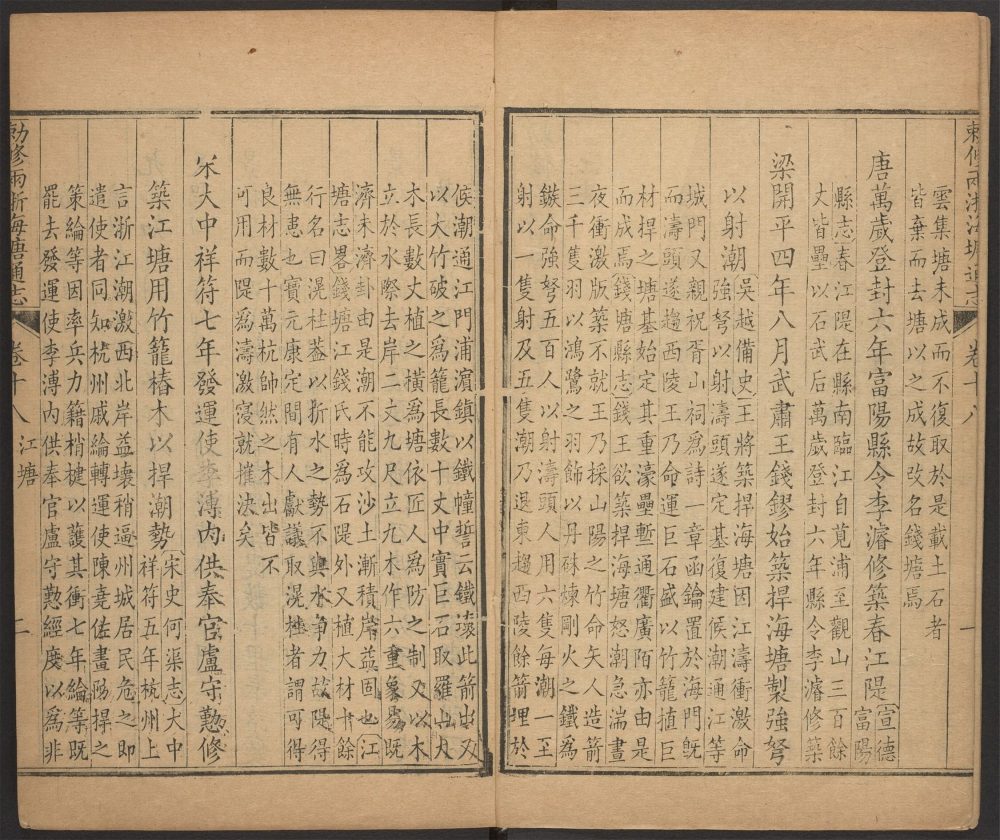 雲集塘未成而不復取於是載土石者
皆棄而去塘以之成故改名錢塘焉
唐萬歲登封六年富陽縣令李濬修築春江隄宣德富陽
縣志春江隄在縣南臨江自莧浦至觀山三百餘
丈皆壘以石武后萬歲登封六年縣令李濬修築
梁開平四年八月武肅王錢鏐始築捍海塘製強弩
以射潮吳越備史王將築捍海塘因江濤衝激命強弩以射濤頭遂定基復建候潮通江等
城門又親祝胥山祠為詩一章函鑰置於海門既
而濤頭遂趨西陵王乃命運巨石盛以竹籠植巨
材捍之塘基始定其重濠壘塹通衢廣陌亦由是
而成焉錢塘縣志錢王欲築捍海塘怒潮急湍晝
夜衝激版築不就王乃採山陽之竹命矢人造箭
三千隻羽以鴻鷺之羽飾以丹硃鍊剛火之鐵為
鏃命強弩五百人以射濤頭人用六隻每潮一至
射以一隻射及五隻潮乃退東趨西陵餘箭埋於
候潮通江門浦濵鎮以鐵幢誓云鐵壞此箭出又
以大竹破之爲籠長數十丈中實巨石取羅山大
木長數丈植之橫爲塘依匠人爲防之制又以木
立於水際去岸二丈九尺立九木作六重象易既
濟未濟卦由是潮不能攻沙土漸積岸益固也江
塘志畧錢塘江錢氏時爲石隄外又植大材十餘
行名曰滉柱葢以折水之勢不與水爭力故隄得
無患也寶元康定間有人獻議取滉柱者謂可得
良材數十萬杭帥然之木出皆不
可用而隄爲濤激寖就摧決矣
宋大中祥符七年發運使李溥內供奉官盧守懃修
築江塘用竹籠樁木以捍潮勢宋史何渠志大中祥符五年杭州上
言浙江潮激西北岸益壞稍逼州城居民危之即
遣使者同知杭州戚綸轉運使陳堯佐畫防捍之
策綸等因率兵力籍梢楗以護其衝七年綸等既
罷去發運使李溥內供奉官盧守懃經度以爲非
勅修兩浙海塘通志
卷十八
江塘
一
二